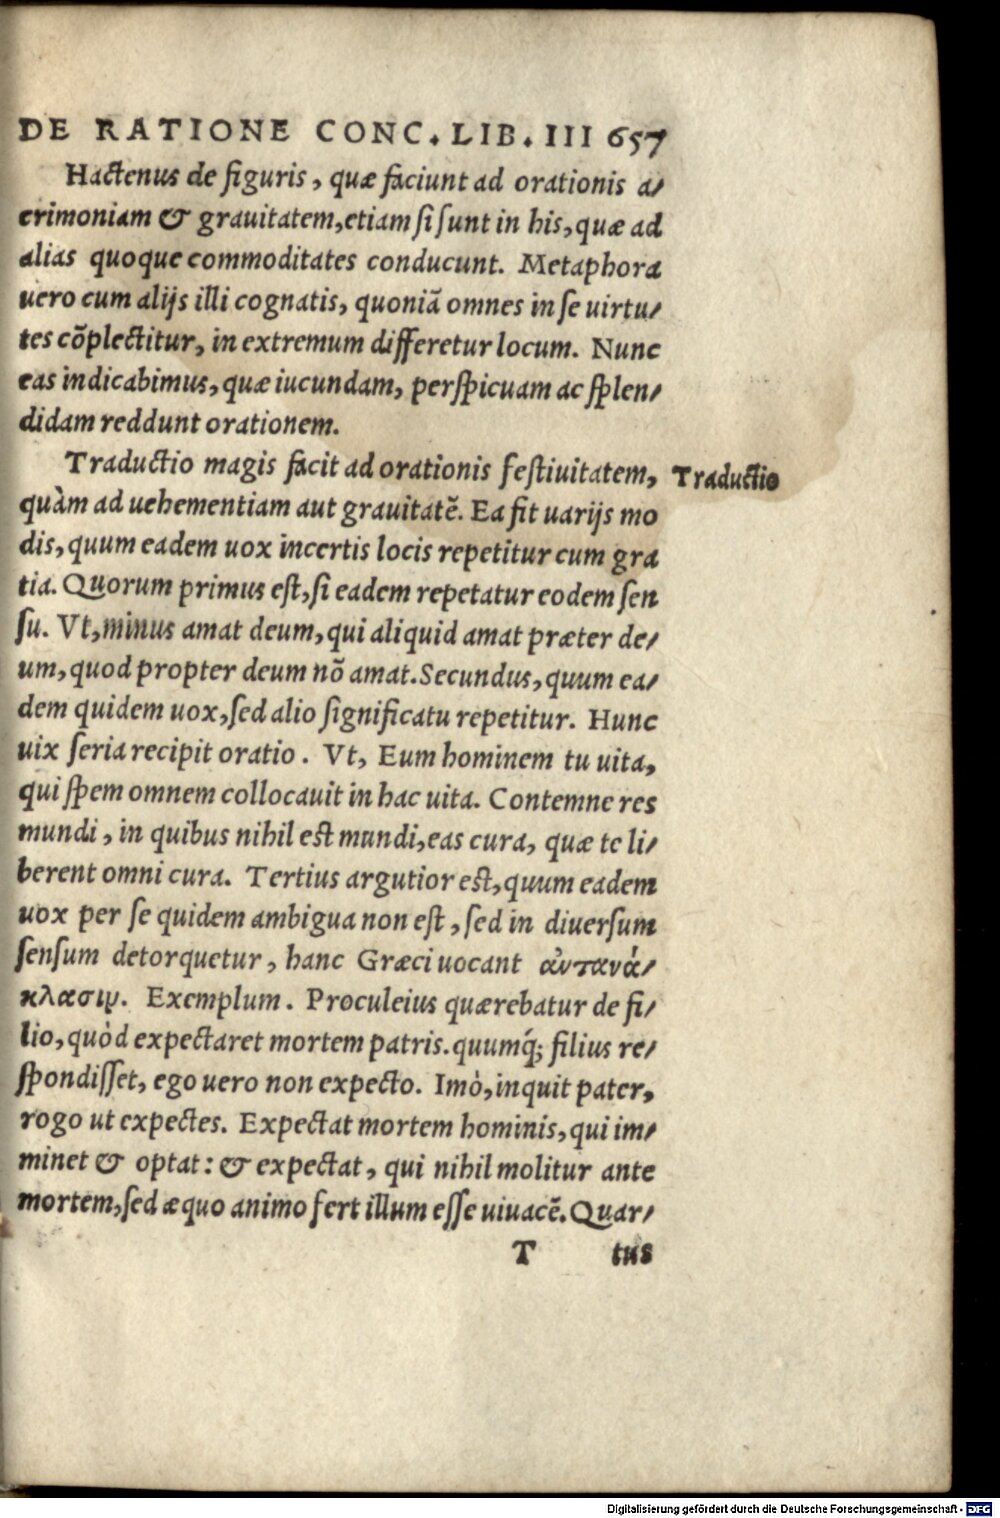 DE RATIONE CONC. LIB. III 657
Hactenus de figuris, quæ faciunt ad orationis a/
crimoniam & grauitatem, etiam si sunt in his, quæ ad
alias quoque commoditates conducunt. Metaphora
uero cum alijs illi cognatis, quoniã omnes in se uirtu/
tes cõplectitur, in extremum differetur locum. Nunc
eas indicabimus, quæ iucundam, perspicuam ac splen/
didam reddunt orationem.
Traductio magis facit ad orationis festiuitatem,
Traductio
quàm ad uehementiam aut grauitatẽ. Ea fit uarijs mo
dis, quum eadem uox incertis locis repetitur cum gra
tia. Quorum primus est, si eadem repetatur eodem sen
su. Vt, minus amat deum, qui aliquid amat præter de/
um, quod propter deum nõ amat. Secundus, quum ea/
dem quidem uox, sed alio significatu repetitur. Hunc
uix seria recipit oratio. Vt, Eum hominem tu uita,
qui spem omnem collocauit in hac uita. Contemne res
mundi, in quibus nihil est mundi, eas cura, quæ te li/
berent omni cura. Tertius argutior est, quum eadem
uox per se quidem ambigua non est, sed in diuersum
sensum detorquetur, hanc Græci uocant ἀντανά/
κλασιμ. Exemplum. Proculeius quærebatur de fi/
lio, quòd expectaret mortem patris. quumq́; filius re/
spondisset, ego uero non expecto. Imò, inquit pater,
rogo ut expectes. Expectat mortem hominis, qui im/
minet & optat: & expectat, qui nihil molitur ante
mortem, sed æquo animo fert illum esse uiuacẽ. Quar/
T tus
Digitalisierung gefördert durch die Deutsche Forschungsgemeinschaft - DFG